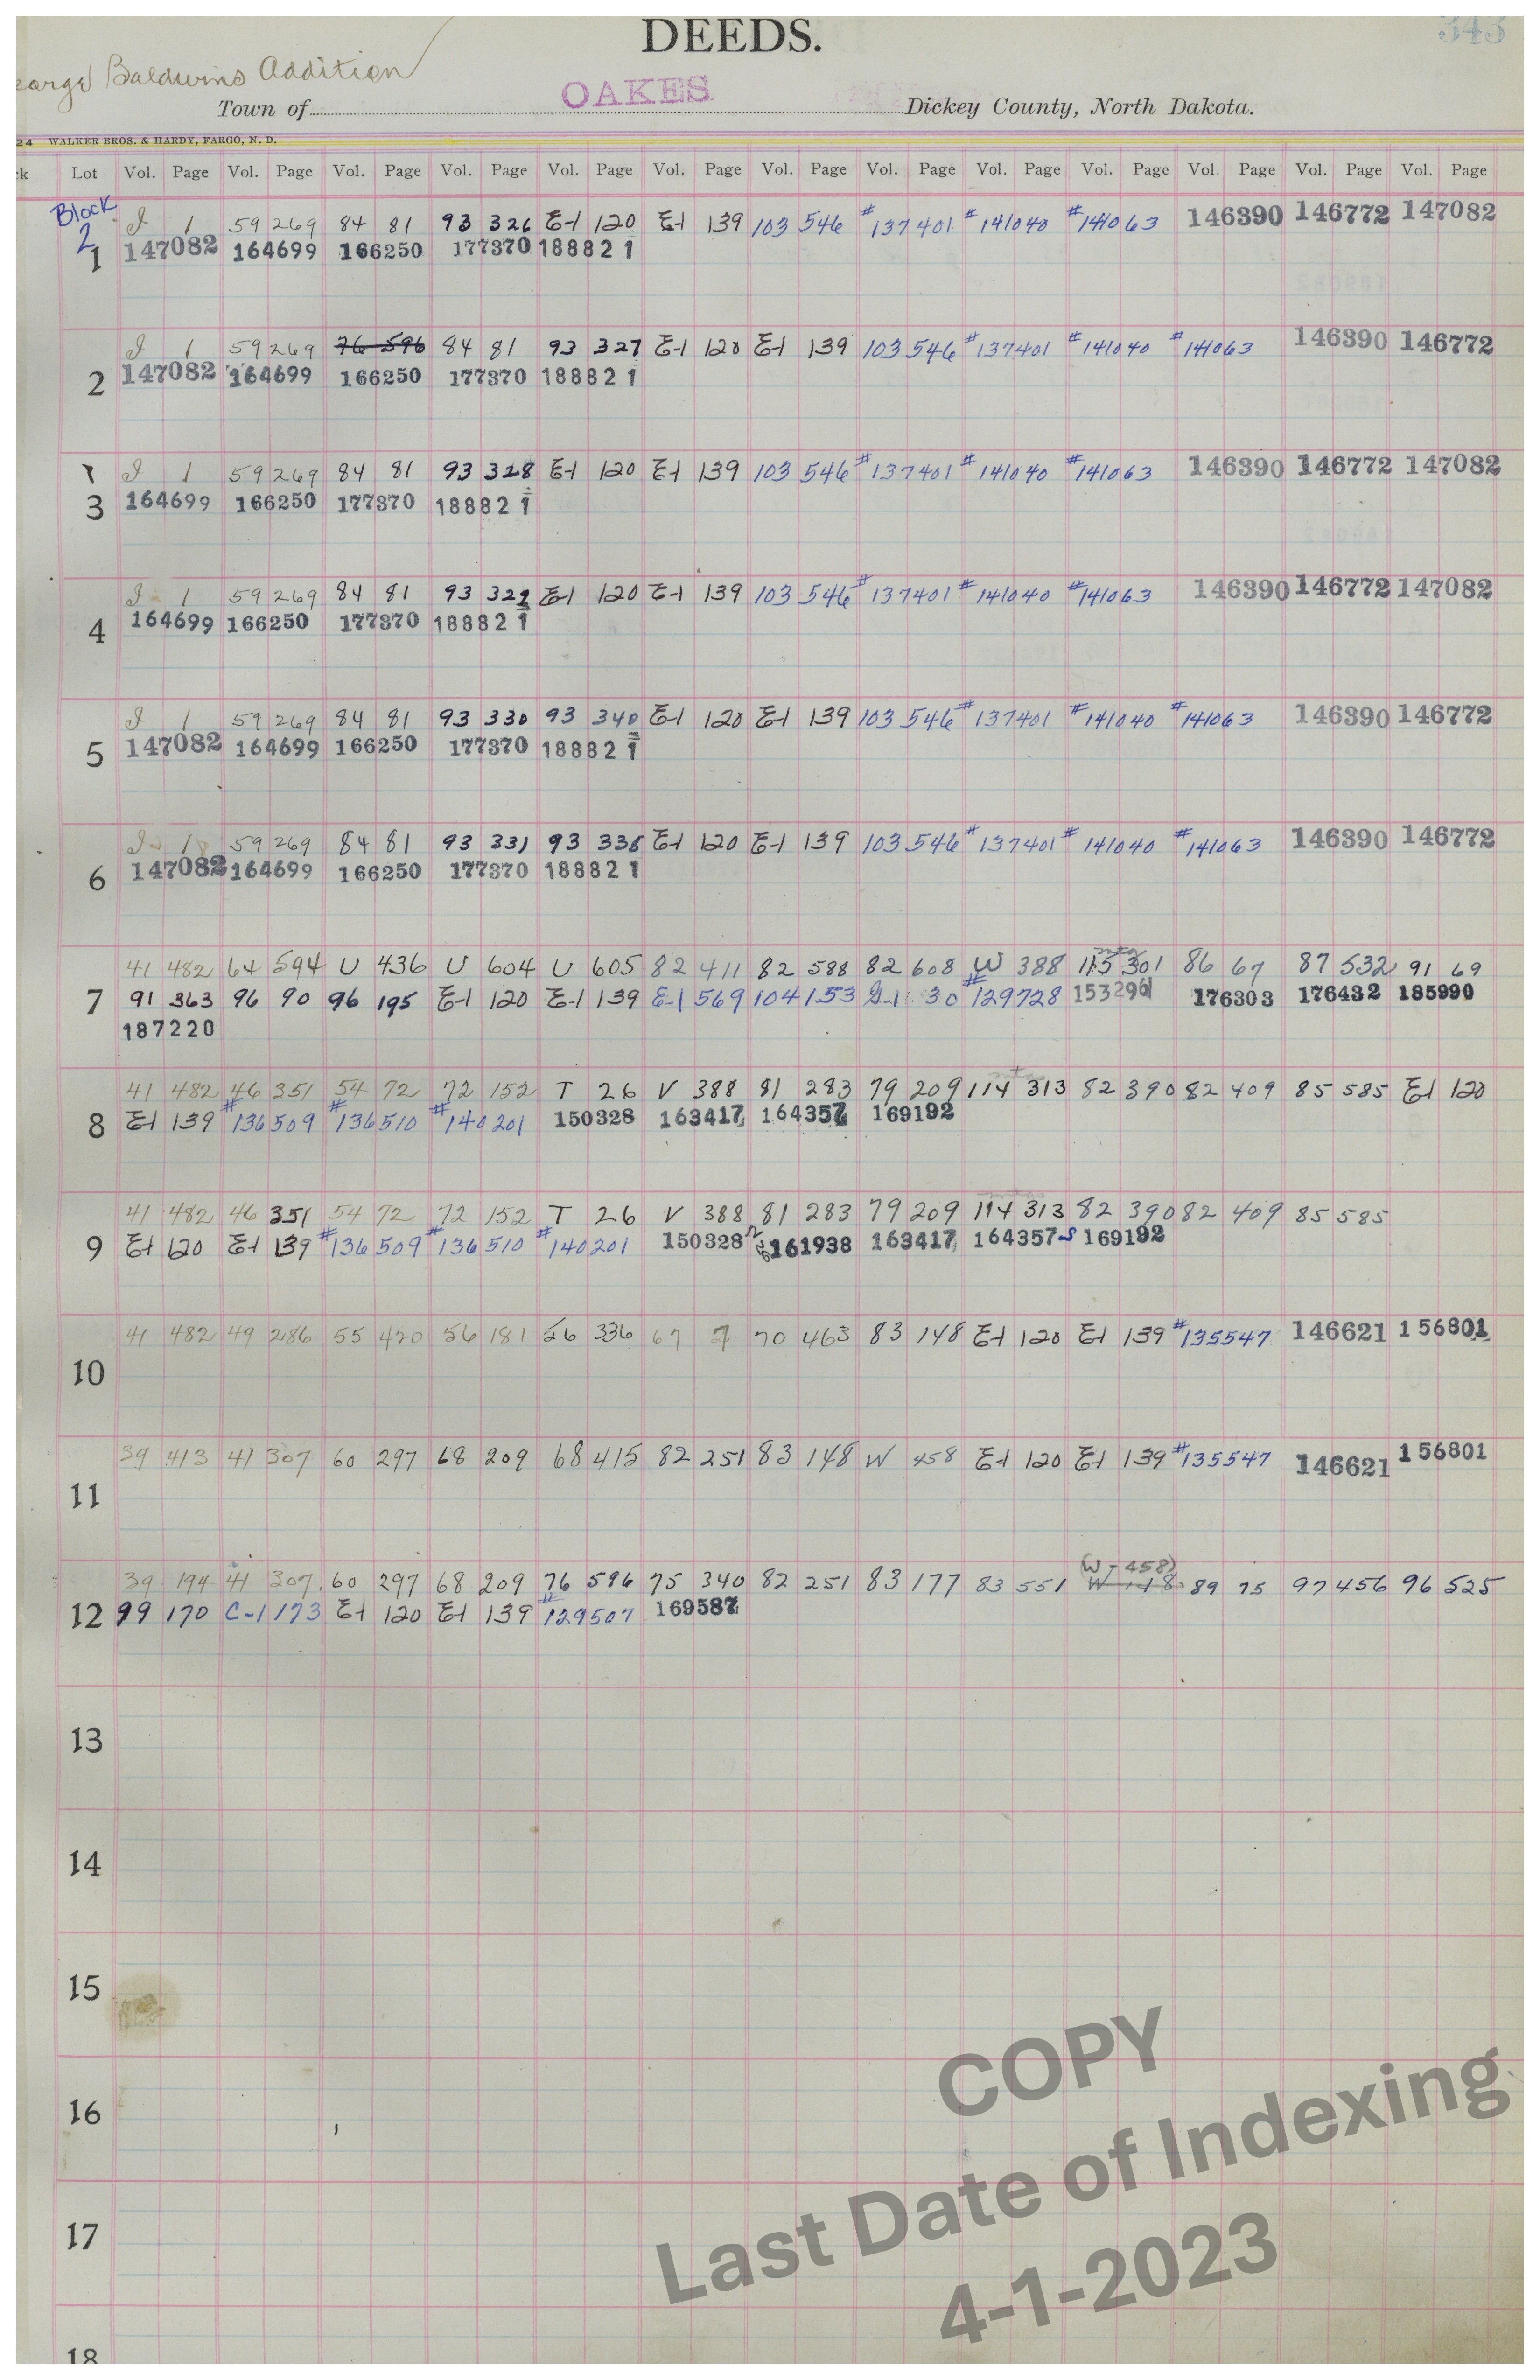 DEEDS.
343
Baldwins Addition
Town of OAKES Dickey County, North Dakota.
24 WALKER BROS. & HARDY, FARGO, N. D.
ck Lot Vol. Page Vol. Page Vol. Page Vol. Page Vol. Page Vol. Page Vol. Page Vol. Page Vol. Page Vol. Page Vol. Page Vol. Page Vol. Page
Block
2
I 1 59 269 84 81 93 326 E-1 120 E-1 139 103 546 #137401 #141040 #141063 146390 146772 147082
1 147082 164699 166250 177370 188821
I 1 59 269 76 596 84 81 93 327 E-1 120 E-1 139 103 546 #137401 #141040 #141063 146390 146772
2 147082 164699 166250 177370 188821
I 1 59 269 84 81 93 328 E-1 120 E-1 139 103 546 #137401 #141040 #141063 146390 146772 147082
3 164699 166250 177370 188821
I 1 59 269 84 81 93 329 E-1 120 E-1 139 103 546 #137401 #141040 #141063 146390 146772 147082
4 164699 166250 177370 188821
I 1 59 269 84 81 93 330 93 340 E-1 120 E-1 139 103 546 #137401 #141040 #141063 146390 146772
5 147082 164699 166250 177370 188821
I 1 59 269 84 81 93 331 93 338 E-1 120 E-1 139 103 546 #137401 #141040 #141063 146390 146772
6 147082 164699 166250 177370 188821
41 482 64 594 U 436 U 604 U 605 82 411 82 588 82 608 W 388 115 301 86 67 87 532 91 69
7 91 363 96 90 96 195 E-1 120 E-1 139 E-1 569 104 153 G-1 30 #129728 153296 176303 176432 185990
187220
41 482 46 351 54 72 72 152 T 26 V 388 81 283 79 209 114 313 82 390 82 409 85 585 E-1 120
8 E-1 139 #136509 #136510 #140201 150328 163417 164357 169192
41 482 46 351 54 72 72 152 T 26 V 388 81 283 79 209 114 313 82 390 82 409 85 585
9 E-1 120 E-1 139 #136509 #136510 #140201 150328 161938 163417 164357 169192
41 482 49 286 55 420 56 181 56 336 67 7 70 463 83 148 E-1 120 E-1 139 #135547 146621 156801
10
39 413 41 307 60 297 68 209 68 415 82 251 83 148 W 458 E-1 120 E-1 139 #135547 146621 156801
11
(W-458)
39 194 41 307 60 297 68 209 76 596 75 340 82 251 83 177 83 551 W 89 75 97 456 96 525
12 99 170 C-1 173 E-1 120 E-1 139 #129507 169587
13
14
15
16
17
18
COPY
Last Date of Indexing
4-1-2023